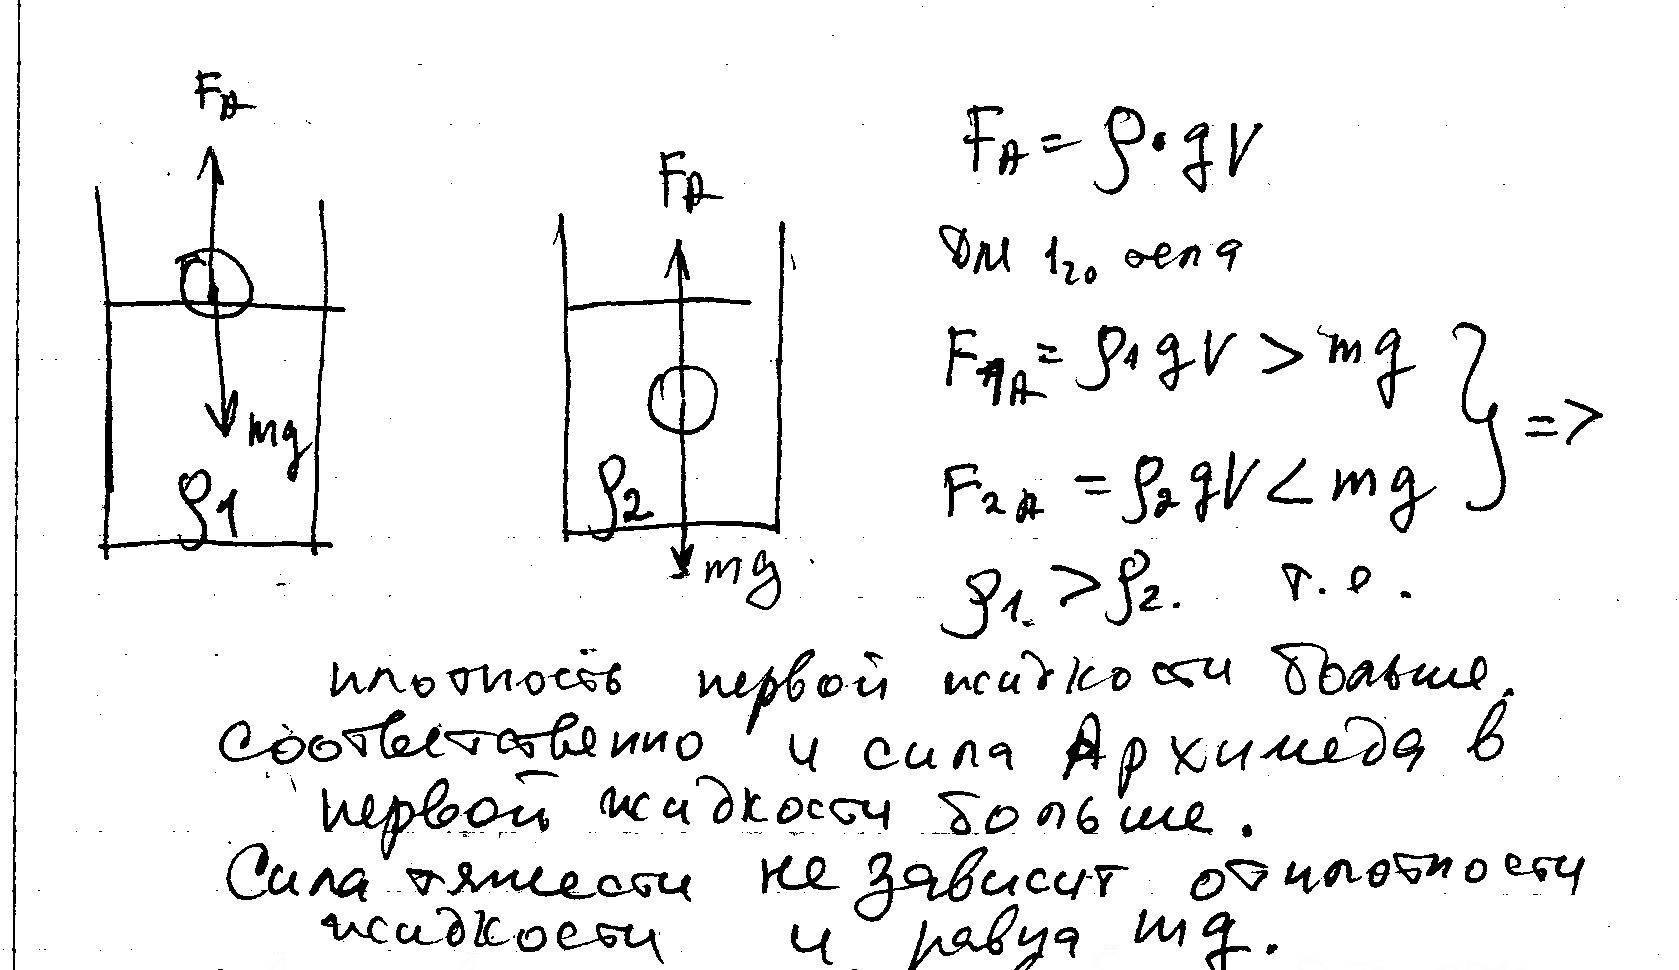 F_A
F_A
mg
ρ1
ρ2
mg
F_A = ρ·gV
Для 1го тела
F_1A = ρ1 gV > mg
F_2A = ρ2 gV < mg
} =>
ρ1. > ρ2. т.е.
плотность первой жидкости больше.
Соответственно и сила Архимеда в
первой жидкости больше.
Сила тяжести не зависит от плотности
жидкости и равна mg.